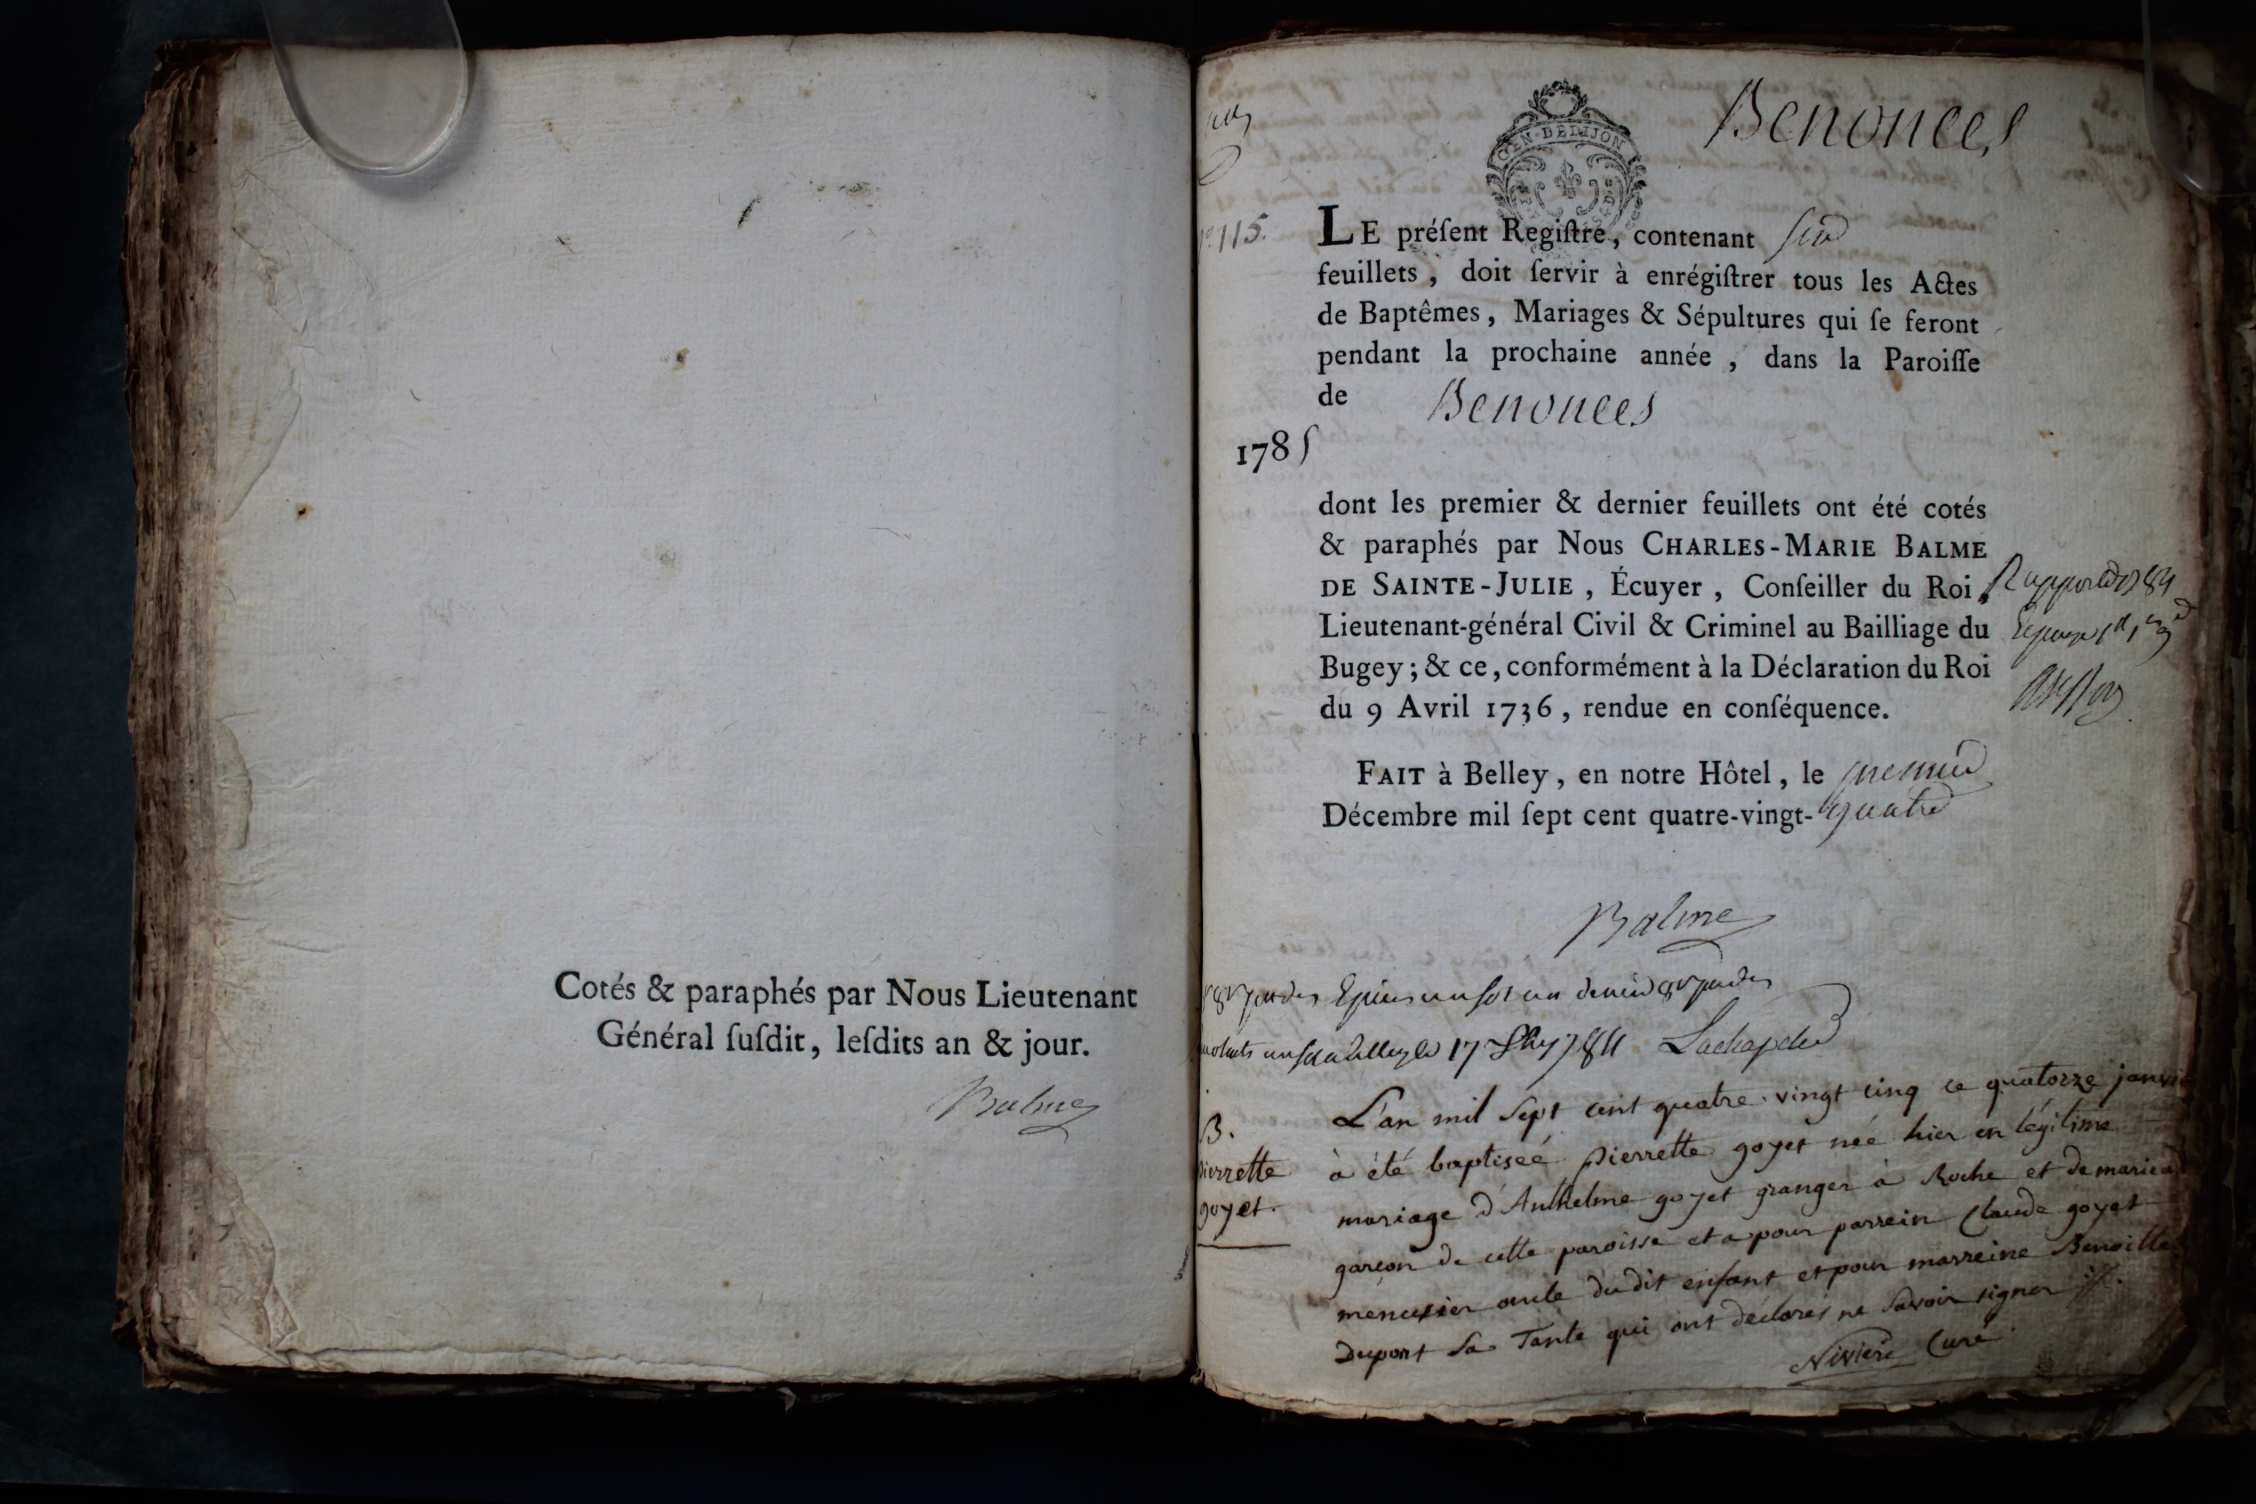 Cotés & paraphés par Nous Lieutenant
Général ſuſdit, leſdits an & jour.
Balme
Benonces
GEN·DE DIJON
115.
LE préſent Regiſtre, contenant
feuillets, doit ſervir à enrégiſtrer tous les Actes
de Baptêmes, Mariages & Sépultures qui ſe feront
pendant la prochaine année, dans la Paroiſſe
de Benonces
1785
dont les premier & dernier feuillets ont été cotés
& paraphés par Nous CHARLES-MARIE BALME
DE SAINTE-JULIE, Écuyer, Conſeiller du Roi,
Lieutenant-général Civil & Criminel au Bailliage du
Bugey; & ce, conformément à la Déclaration du Roi
du 9 Avril 1736, rendue en conſéquence.
FAIT à Belley, en notre Hôtel, le premier
Décembre mil ſept cent quatre-vingt-quatre
Balme
17 1784 Lachapelle
B.
pierrette
goyet.
L'an mil sept cent quatre vingt cinq ce quatorze janvi
à été baptiseé pierrette goyet née hier en légitime
mariage d'Anthelme goyet granger à Roche et de marie
garçon de cette paroisse et a pour parrein Claude goyet
menusier oncle du dit enfant et pour marreine Benoitte
Dupont sa Tante qui ont déclarés ne savoir signer
Niviere Curé